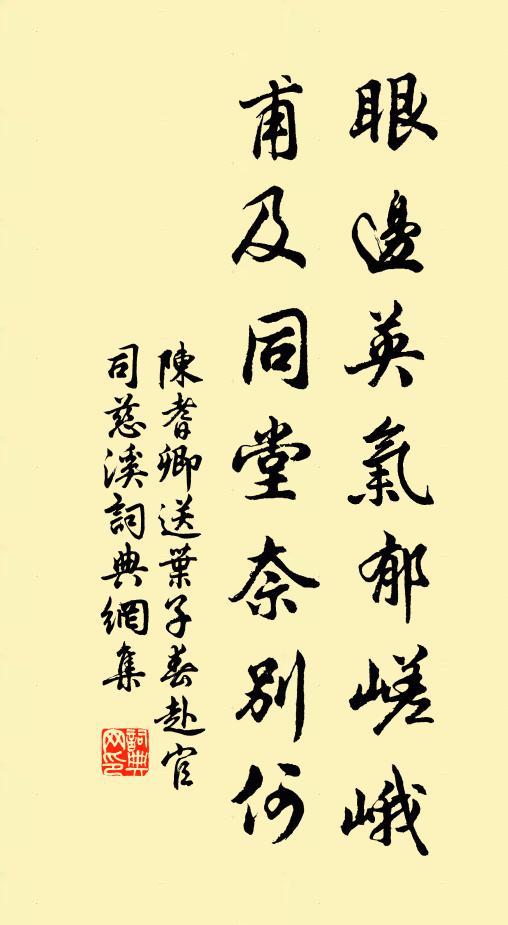 眼邊英氣郁嵯峨
甫及同堂奈別何
陳耆卿送葉子春赴官
司慈溪詞典網集
詞典网印